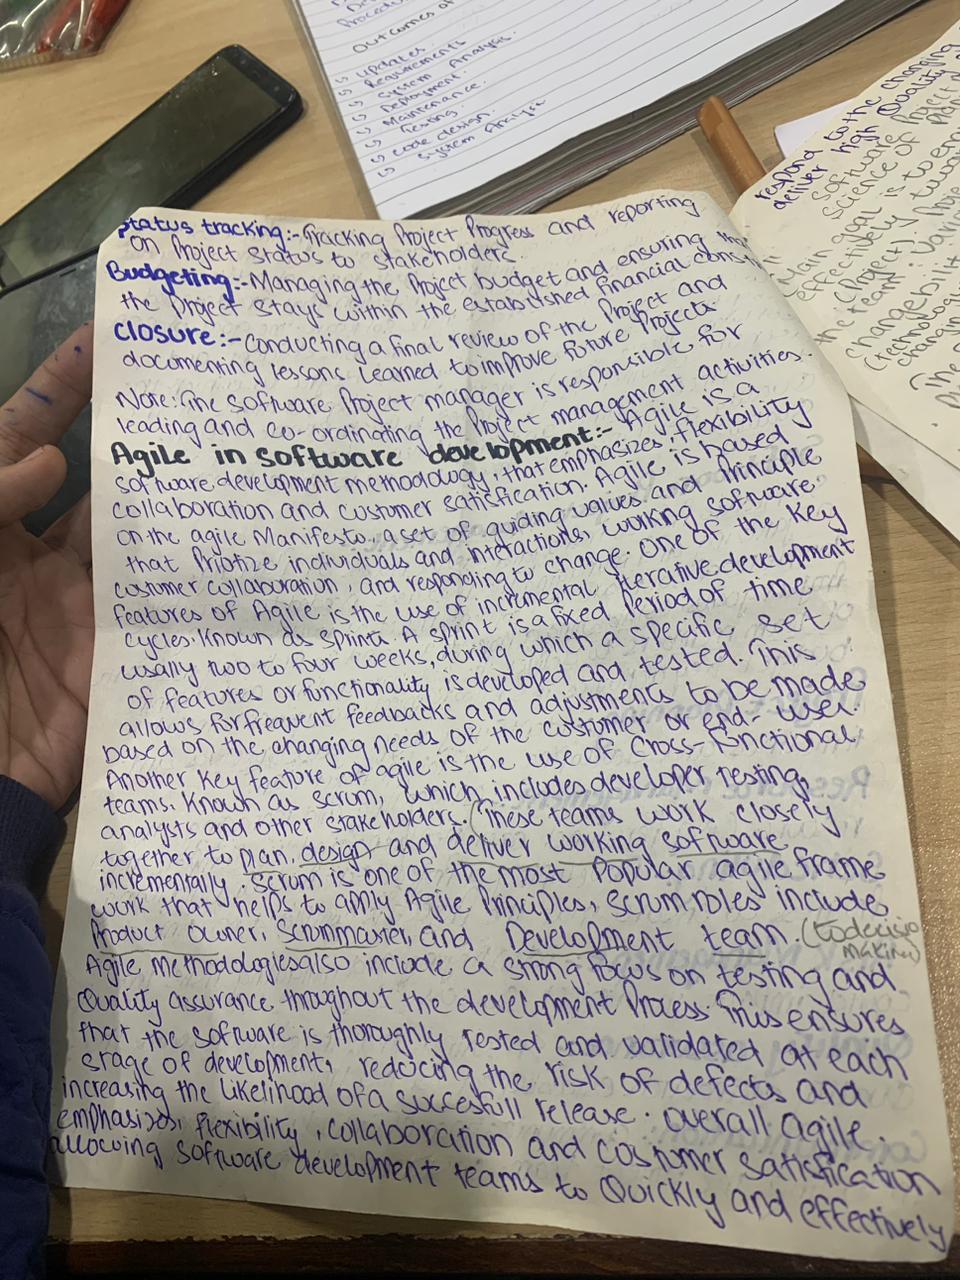 Outcomes of
↳ updates
↳ Requirements
↳ System Analysis.
↳ Deployment.
↳ Maintenance.
↳ Testing.
↳ code design.
↳ System Analysis
respond to the changing
deliver high Quality
Software Project
Science of
Main goal is to
effectively
(Project).
the team
changebilit
(technology
The
Status tracking:- Tracking Project Progress and reporting
on Project status to stakeholders.
Budgeting:- Managing the Project budget and ensuring that
the Project stays within the established financial
Closure:- Conducting a final review of the Project and
documenting lessons learned to improve future Projects.
Note: The software Project manager is responsible for
leading and co-ordinating the Project management activities.
Agile in software development:- Agile is a
software development methodology, that emphasizes, flexibility
collaboration and customer satisfication. Agile is based
on the agile Manifesto, a set of guiding values and Principle
that Priotize individuals and interactions, working software
customer collaboration, and responding to change. One of the Key
features of Agile is the use of incremental, iterative development
cycles. Known as sprints. A sprint is a fixed Period of time
usally two to four weeks, during which a specific set
of features or functionality is developed and tested. This
allows for frequent feedbacks and adjustments to be made
based on the changing needs of the customer or end-user.
Another Key feature of agile is the use of Cross-functional
teams. Known as scrum, which includes developer testing,
analysts and other stakeholders. (These teams work closely
together to plan, design and deliver working software
incrementally. Scrum is one of the most Popular agile frame
work that helps to apply Agile Principles, Scrum roles include
Product owner, Scrummaster, and Development team. (to decisio
making)
Agile methodologies also include a strong focus on testing and
Quality assurance throughout the development Process. This ensures
that the software is thoroughly tested and validated at each
stage of development, reducing the risk of defects and
increasing the likelihood of a succesfull release. Overall agile.
emphasizes, flexibility, collaboration and customer satisfication
allowing software development teams to Quickly and effectively